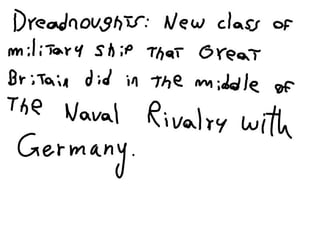 Dreadnoughts: New class of
military ship that Great
Britain did in the middle of
The Naval Rivalry with
Germany.